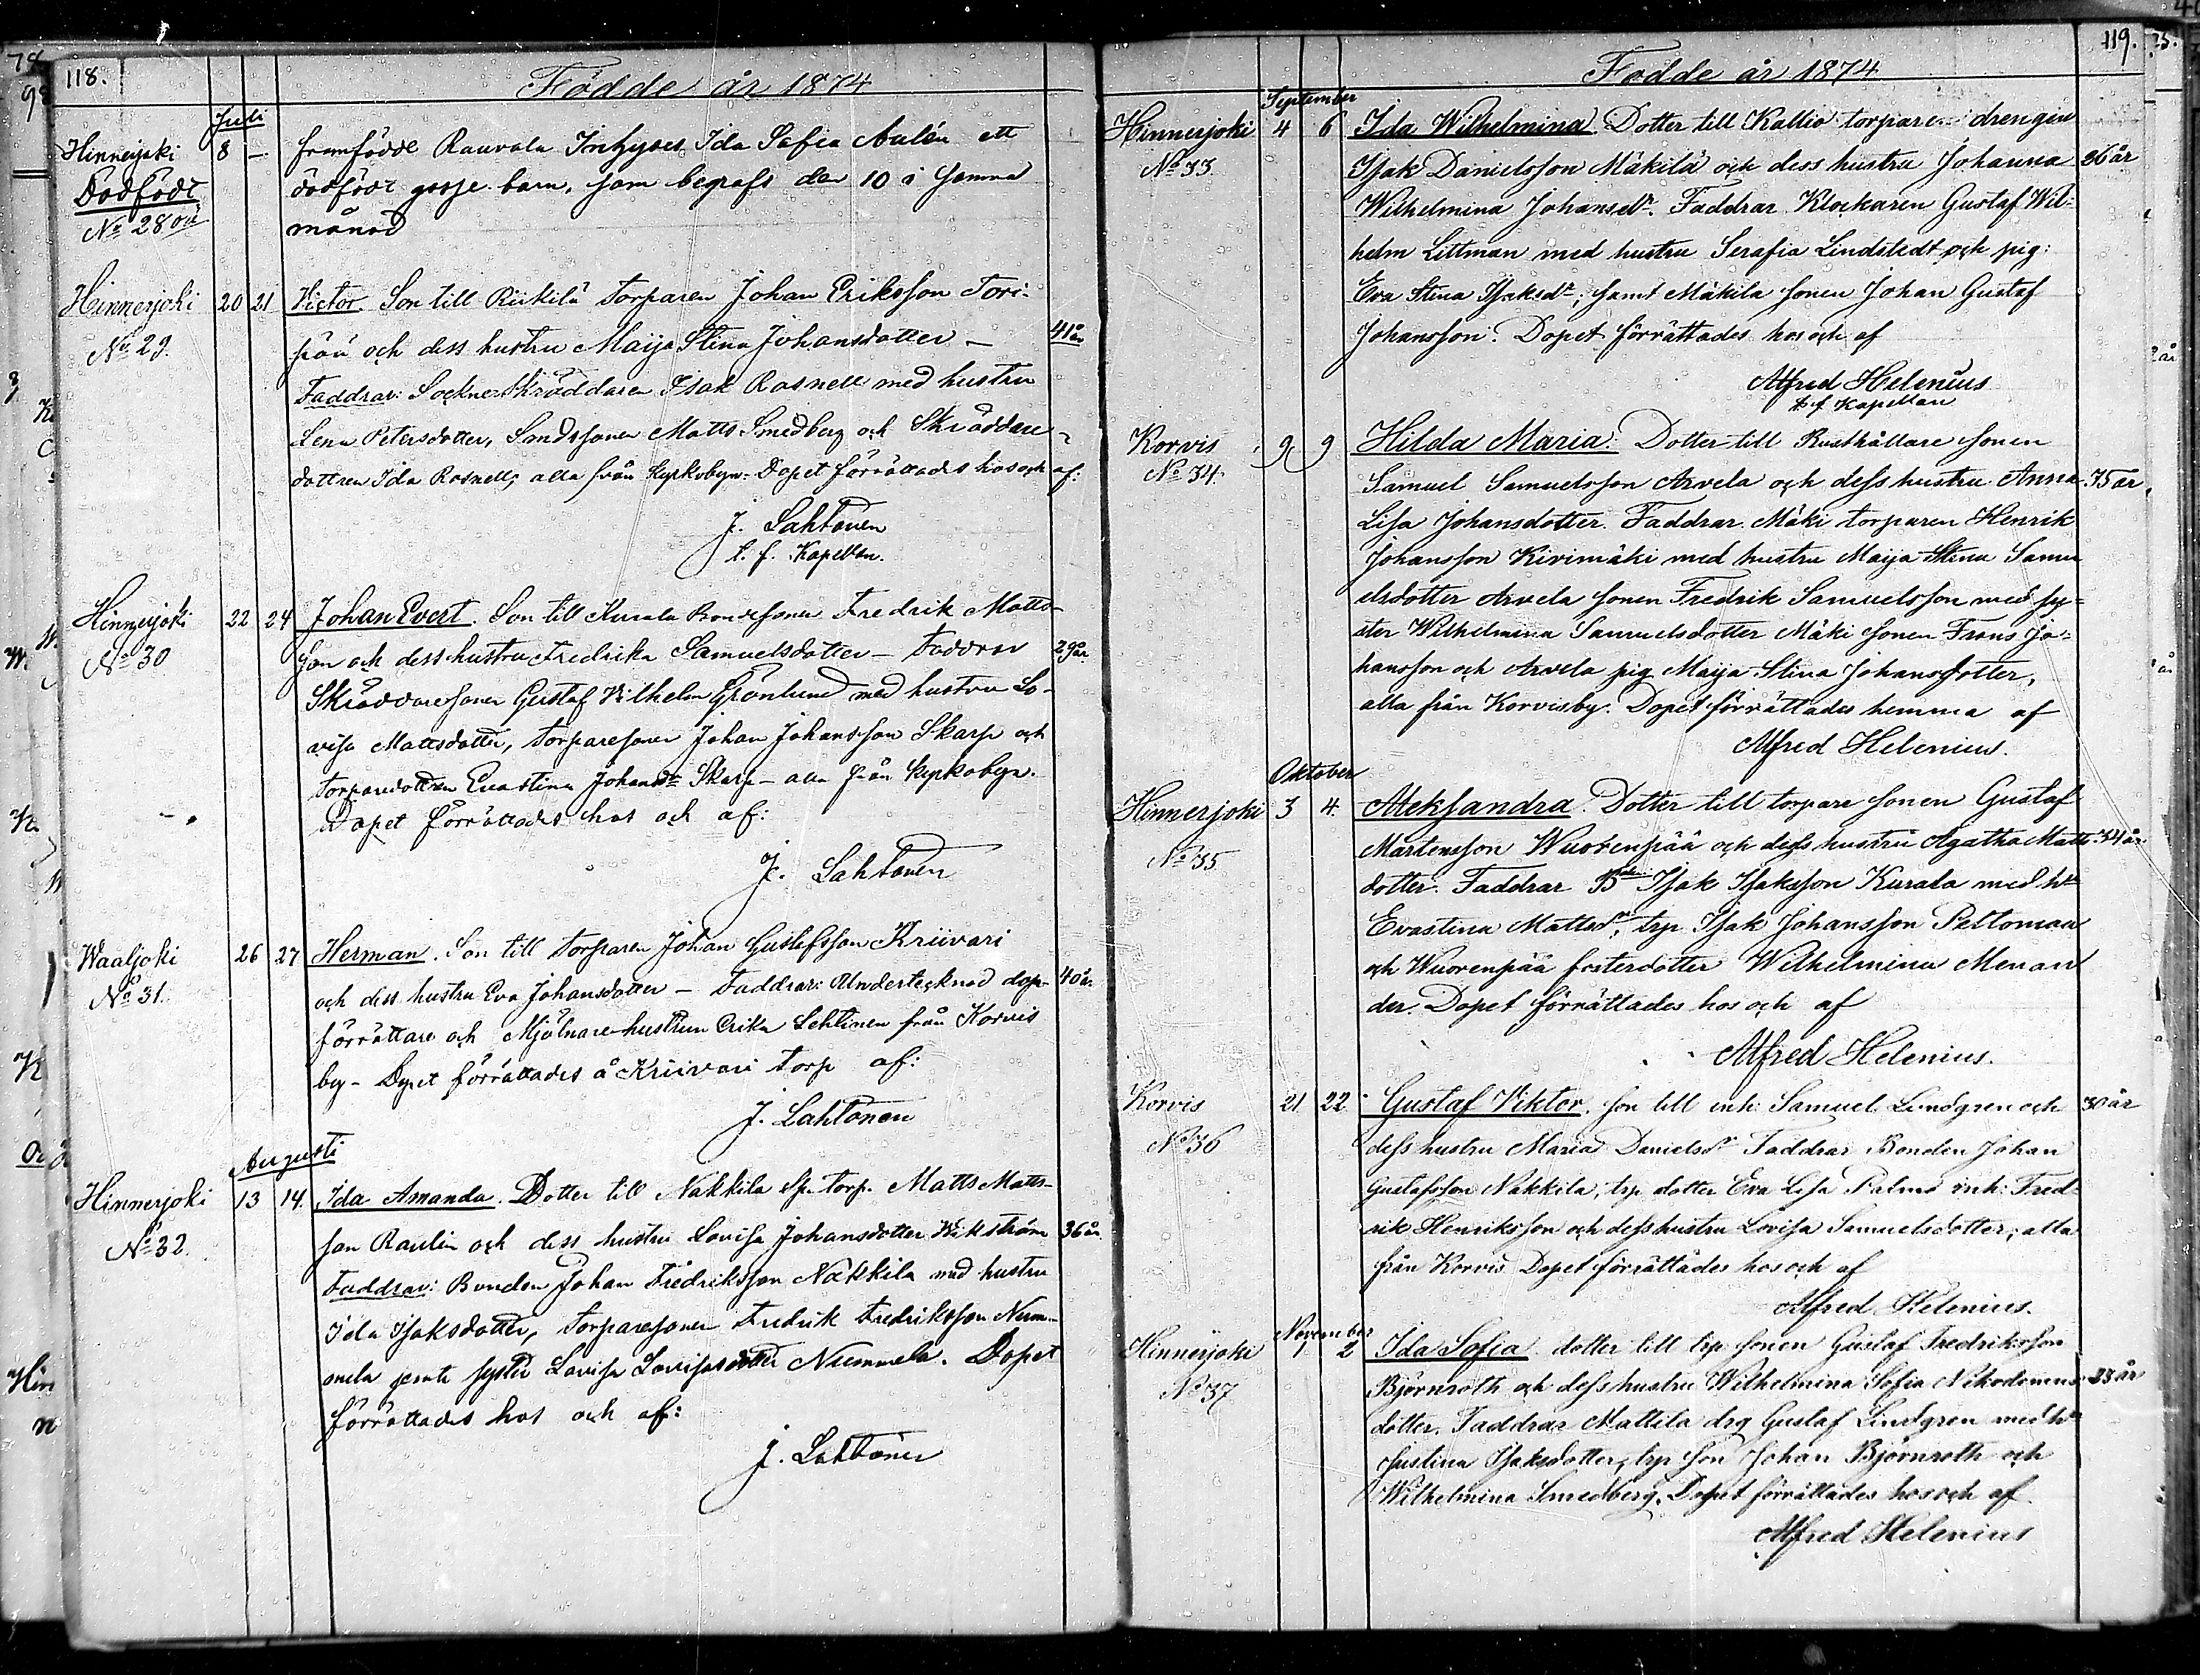 118.
Födde år 1874
Juli
Hinnerjoki 8 – framfödde Rauvala Inhyses Ida Sofia Aulén ett
Dödfödt dödfödt gosse barn, som begrafs den 10 i samma
No 28 månad
Hinnerjoki 20 21 Victor. Son till Riikilä torparen Johan Eriksson Tori-
No 29. pää och dess hustru Maija Stina Johansdotter – 41 år
Faddrar: Sockneskräddaren Isak Rosnell med hustru
Lena Petersdotter, Smedssonen Matts Smedberg och Skräddare-
dottren Ida Rosnell, alla från Kyrkobyn. Dopet förrättades hos och af:
J. Lahtonen
t. f. Kapellan.
Hinnerjoki 22 24 Johan Evert. Son till Kurala Bondesonen Fredrik Matts-
No 30 son och dess hustru Fredrika Samuelsdotter – Faddrar 29 år
Skräddaresonen Gustaf Vilhelm Grönlund med hustru Lo-
visa Mattsdotter, torparesonen Johan Johansson Skarp och
torparedottren Evastina Johansdr Skarp – alla från Kyrkobyn.
Dopet förrättades hos och af:
J. Lahtonen
Waaljoki 26 27 Herman. Son till torparen Johan Gustafsson Kriivari
No 31. och dess hustru Eva Johansdotter – Faddrar: Undertecknad dop- 40 år
förrättare och Mjölnarehustrun Erika Lehtinen från Korvis
by – Dopet förrättades å Kriivari torp af:
J. Lahtonen
Augusti
Hinnerjoki 13 14. Ida Amanda. Dotter till Nakkila sp. torp. Matts Matts-
No 32. son Raulin och dess hustru Lovisa Johansdotter Wikström 36 år
Faddrar: Bonden Johan Fredriksson Nakkila med hustru
Ida Isaksdotter, torparesonen Fredrik Fredriksson Num-
mela jemte syster Lovisa Lovisasdotter Nummela. Dopet
förrättades hos och af:
J. Lahtonen
119.
Födde år 1874
September
Hinnerjoki 4 6 Ida Wilhelmina Dotter till Kallio torpare drengen
No 33 Isak Danielsson Mäkilä och dess hustru Johanna 26 år
Wilhelmina Johansdr. Faddrar Klockaren Gustaf Wil-
helm Littman med hustru Serafia Lindstedt och pig:
Eva Stina Isaksdr, samt Mäkilä sonen Johan Gustaf
Johansson. Dopet förrättades hos och af
Alfred Helenius
t. f. Kapellan
Korvis 9 9 Hilda Maria: Dotter till Rusthållare sonen
No 34. Samuel Samuelsson Arvela och dess hustru Anna
Lisa Johansdotter. Faddrar. Mäki torparen Henrik
Johansson Kivimäki med hustru Maija Stina Samu
elsdotter Arvela sonen Fredrik Samuelsson med sy=
ster Wilhelmina Samuelsdotter Mäki sonen Frans Jo=
hansson och Arvela pig. Maija Stina Johansdotter,
alla från Korvisby. Dopet förrättades hemma af
Alfred Helenius.
Oktober
Hinnerjoki 3 4. Aleksandra. Dotter till torpare sonen Gustaf
No 35 Mårtensson Wuorenpää och dess hustru Agatha Matts- 34 år.
dotter. Faddrar Bden Isak Isaksson Kurala med hu
Evastina Mattsdr, trp. Isak Johansson Peltomaa
och Wuorenpää fosterdotter Wilhelmina Menan
der. Dopet förrättades hos och af
Alfred Helenius.
Korvis 21 22 Gustaf Viktor. son till inh: Samuel Lindgren och 30 år
No 36 dess hustru Maria Danielsdr Faddrar Bonden Johan
Gustafsson Nakkila, trp. dotter Eva Lisa Palmé inh: Fred-
rik Henriksson och dess hustru Lovisa Samuelsdotter, alla
från Korvis Dopet förrättades hos och af
Alfred Helenius.
November
Hinnerjoki 1 2 Ida Sofia dotter till trp sonen Gustaf Fredriksson
No 37 Björnroth och dess hustru Wilhelmina Sofia Nikodemus- 23 år
dotter. Faddrar Mattila drg Gustaf Lindgren med hu
Justina Isaksdotter, trp son Johan Björnroth och
Wilhelmina Smedberg. Dopet förrättades hos och af.
Alfred Helenius